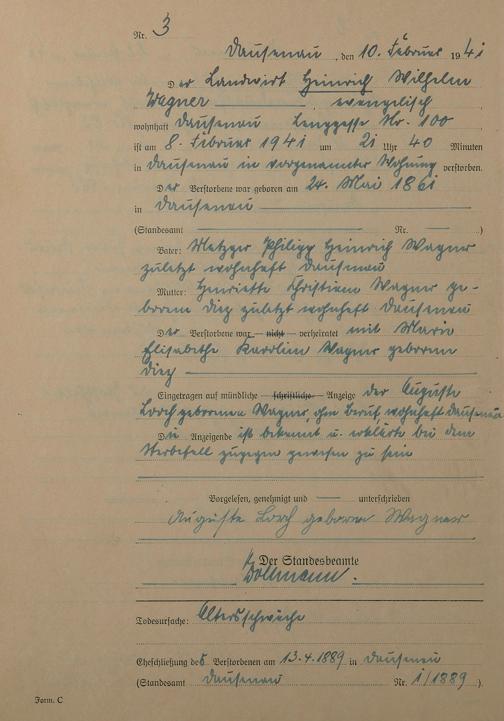 Nr. 3
Dausenau, den 10. Februar 1941
Der Landwirt Heinrich Wilhelm
Wagner, evangelisch
wohnhaft Dausenau Langgasse Nr. 100
ist am 8. Februar 1941 um 21 Uhr 40 Minuten
in Dausenau in vorgenannter Wohnung verstorben.
Der Verstorbene war geboren am 24. Mai 1861
in Dausenau
(Standesamt — Nr. —)
Vater: Metzger Philipp Heinrich Wagner
zuletzt wohnhaft Dausenau
Mutter: Henriette Christiane Wagner ge-
borene Diez zuletzt wohnhaft Dausenau
Der Verstorbene war — nicht — verheiratet mit Marie
Elisabethe Karoline Wagner geborene
Diez
Eingetragen auf mündliche — schriftliche — Anzeige der Auguste
Lorch geborenen Wagner, ohne Beruf, wohnhaft Dausenau
Die Anzeigende ist bekannt u. erklärte bei dem
Sterbefall zugegen gewesen zu sein
Vorgelesen, genehmigt und — unterschrieben
Auguste Lorch geborene Wagner
Der Standesbeamte
Todesursache: Altersschwäche
Eheschließung des Verstorbenen am 13.4.1889 in Dausenau
(Standesamt Dausenau Nr. 1/1889).
Form. C